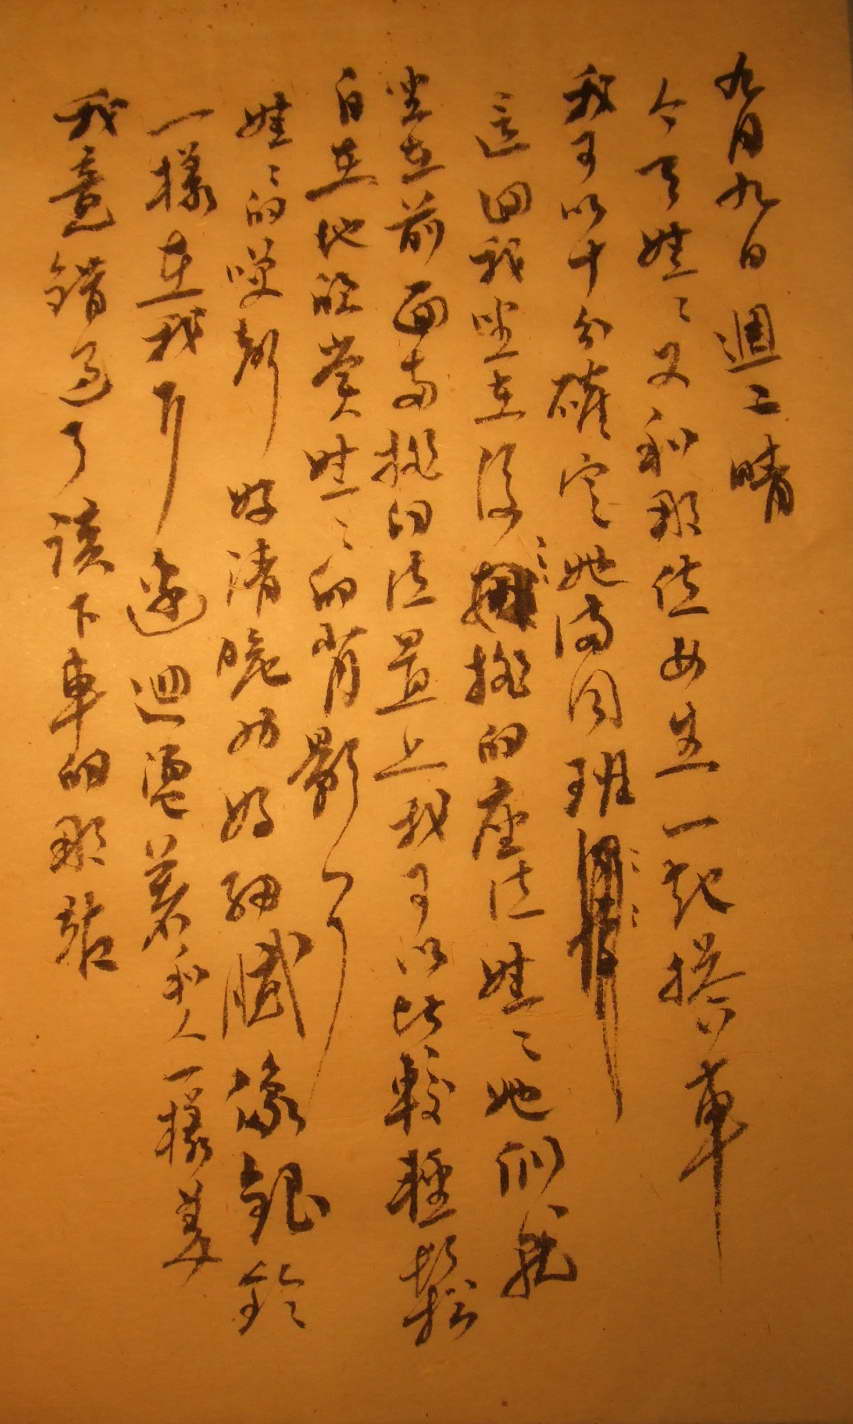 九月九日週二晴
今天娃娃又和那位女生一起搭公車
我可以十分確定她倆同班
這回我坐在後排的座位娃娃她們就
坐在前面兩排的位置上我可以比較輕鬆
自在地欣賞娃娃的背影
娃娃的笑聲好清脆好細膩像銀鈴
一樣在我耳邊迴盪著和人一樣美
我竟錯過了該下車的那站